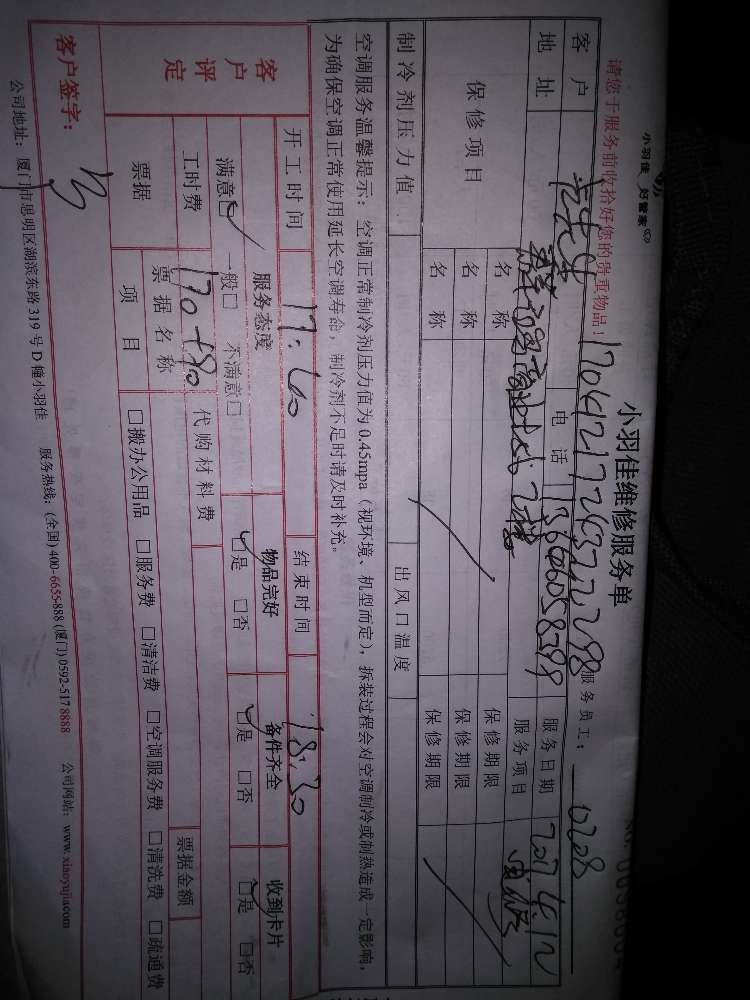 小羽佳 好管家
小羽佳维修服务单
请您于服务前收拾好您的贵重物品！
170421724322298
服务员工： 0208
客户 电话 13606058399 服务日期 2017.4.12
地址 服务项目
保修项目 名称 保修期限
名称 保修期限
名称 保修期限
制冷剂压力值 出风口温度
空调服务温馨提示：空调正常制冷剂压力值为0.45mpa（视环境、机型而定），拆装过程会对空调制冷或制热造成一定影响，
为确保空调正常使用延长空调寿命，制冷剂不足时请及时补充。
开工时间 17:40 结束时间 18:30
客户评定 服务态度 物品完好 备件齐全 收到卡片
满意☑ 一般□ 不满意□ ☑是 □否 ☑是 □否 ☑是 □否
工时费 170+90 代购材料费
票据 票据名称 票据金额
项目 □搬办公用品 □服务费 □清洁费 □空调服务费 □清洗费 □疏通费
客户签字：
公司地址：厦门市思明区湖滨东路319号D幢小羽佳 服务热线：(全国)400-6655-888 (厦门)0592-5178888 公司网站：www.xiaoyujia.com